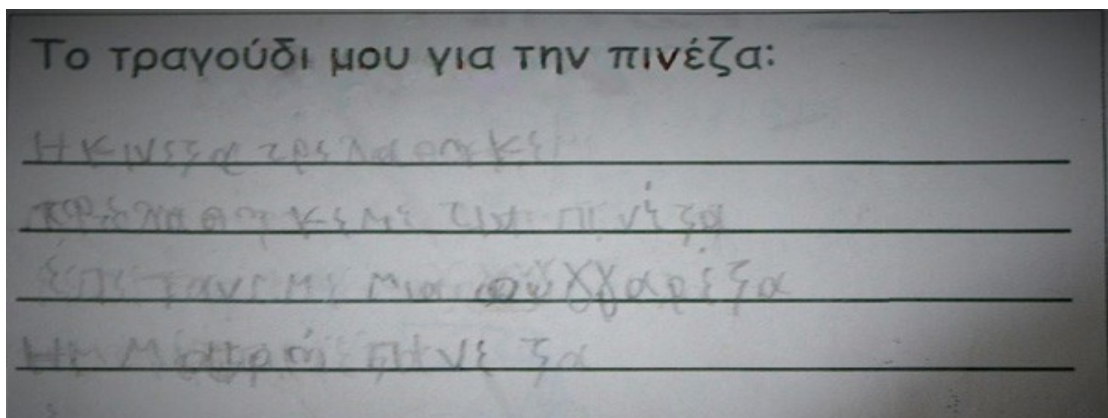 Το τραγούδι μου για την πινέζα:
Η κινεζα τρελαθηκε
τρελαθηκε με τιν πινέζα
επεταν με μια ουγγαρέζα
Η μαυρη πηνεζα